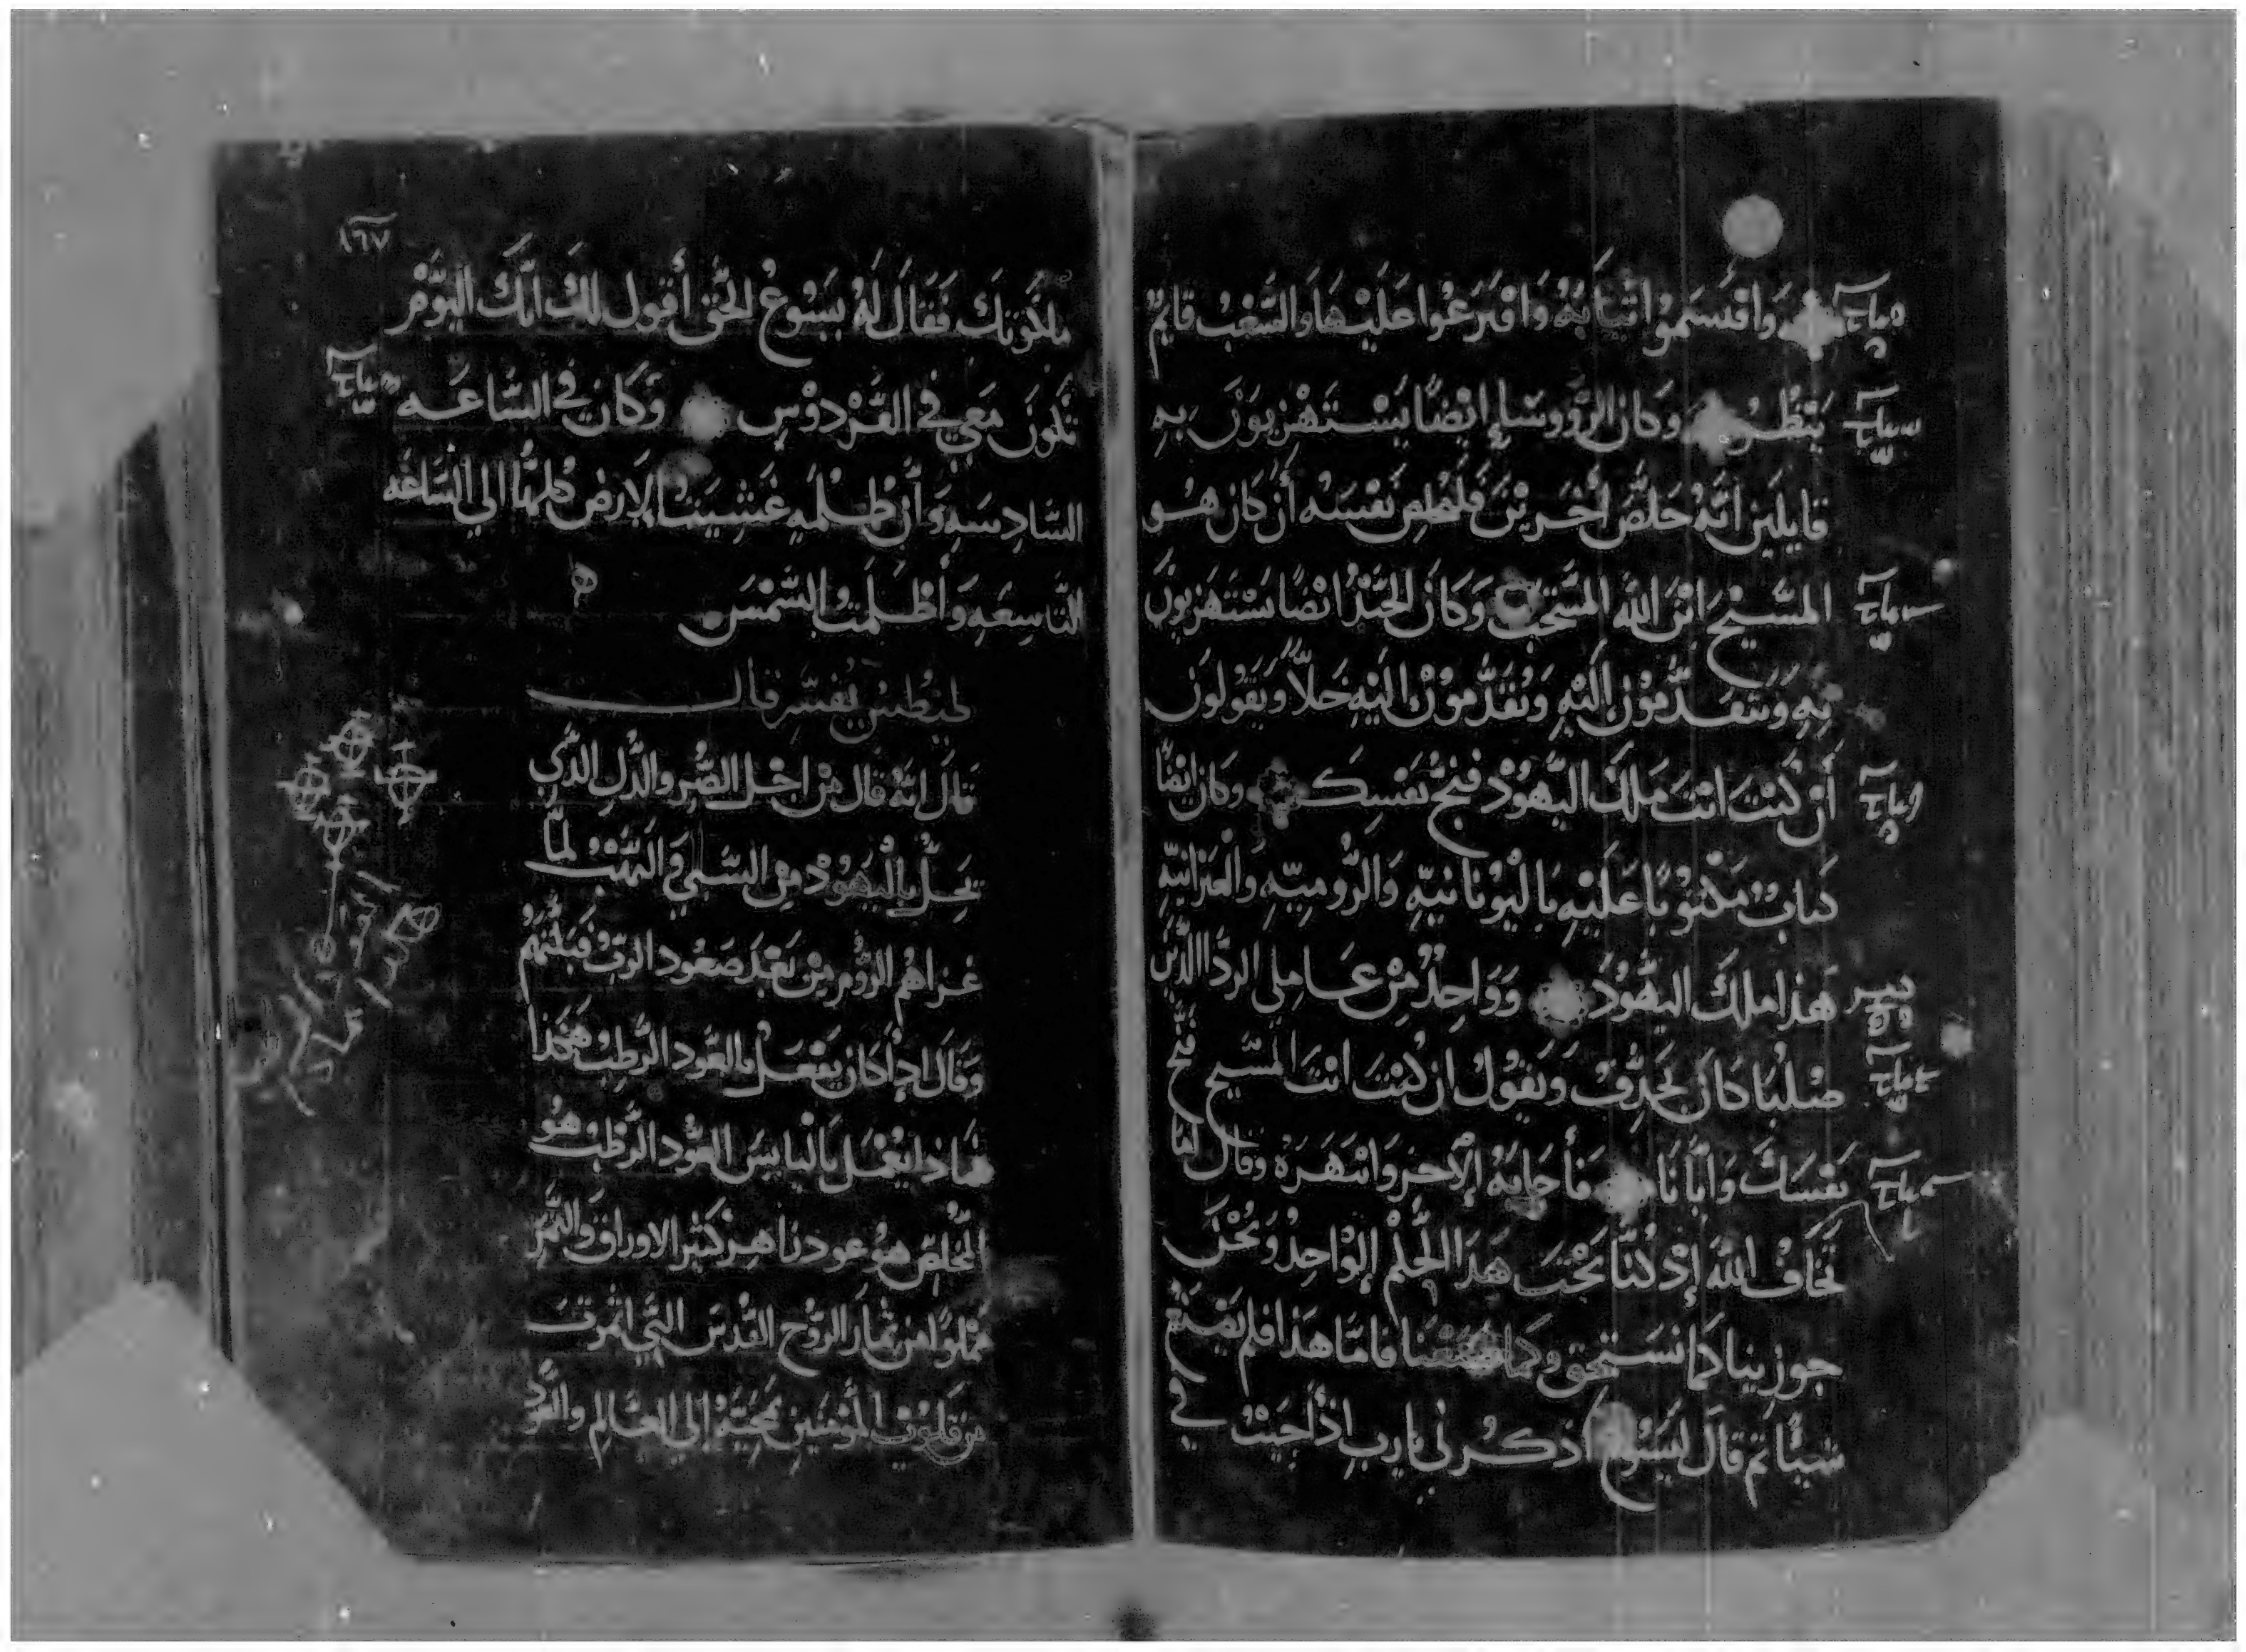 واقتسموا اثيابه واقترعوا عليها والشعب قايم
ينظر وكان الرووساء ايضًا يستهزيون به
قايلين انه خلص اخرين فليخلص نفسه أن كان هو
المسيح ابن الله المنتخب وكان الجند ايضًا يستهزيون
به ويتقدمون اليه ويقدمون اليه خلاً ويقولون
أن كنت انت ملك اليهود فنج نفسك وكان ايضًا
كتاب مكتوبًا عليه باليونانيه والروميه والعبرانيه
هذا ملك اليهود وواحد من عاملى الردا الذين
صلبا كان يجدف ويقول ان كنت انت المسيح فنج
نفسك وايانا فأجابه الاخر وانتهره وقال لما
تخاف الله إد كنا تحت هذا الحكم الواحد ونحن
جوزينا كما نستحق وكما صنعنا فاما هذا فلم يصنع
شيًا تم قال ليسوع اذكرني يا رب اذا جيت في
١٦٧
ملكوتك فقال له يسوع الحق أقول لك انك اليوم
تكون معي في الفردوس وكان في الساعه
السادسه وأن ظلمه غشيت الارض كلها الي الساعه
التاسعه وأظلمت الشمس
يفسر قال
قال انه قال من اجل الضر والذل الذي
يحل باليهود من السبي و النهب لما
غزاهم الروم من بعد صعود الرب قبلتهم
وقال ادا كان يفعل بالعود الرطب هكذا
فماذا يفعل باليابس العود الرطب هو
المخلص هو عود ناهز كثير الاوراق والثمر
مملوا من ثمار الروح القدس التي اثمرت
من قلوب المومنين بمجيته إلي العالم والعود